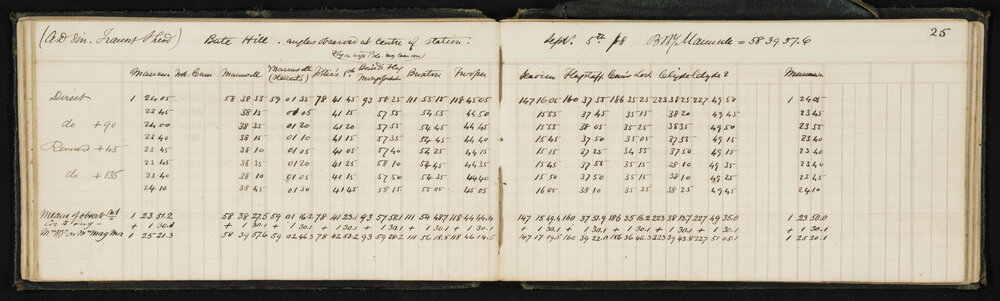 (A.D. 8in. Transit Theod) Bute Hill. angles observed at centre of station. Sept. 5th /78 = 58 39 57.6 25
(Heliots)
Maunsell Jollie's Buxton Trooper Flagstaff Clyde Clyde 2
Direct 1 24 05 58 38 55 59 01 35 78 41 45 93 58 25 111 55 15 118 45 05 147 16 05 160 37 55 186 35 25 223 38 25 227 49 50 1 24 05
23 45 38 15 01 05 41 15 57 55 54 55 44 50 15 55 37 45 35 15 38 20 49 45 23 45
do +90 24 00 38 35 01 20 41 20 57 55 54 45 44 45 15 55 38 05 35 25 38 35 49 50 23 55
23 40 38 15 01 10 41 15 57 35 54 45 44 40 15 45 37 50 35 05 38 25 49 15 23 40
Reversed +45 23 45 38 10 01 05 41 05 57 40 54 25 44 15 15 15 37 25 34 55 37 50 49 15 23 40
23 45 38 35 01 20 41 25 58 10 54 45 44 35 15 45 37 55 35 15 38 10 49 35 23 40
do +135 23 40 38 10 01 05 41 15 57 50 54 35 44 40 15 50 37 50 35 15 38 10 49 45 23 40
24 10 38 45 01 30 41 45 58 15 55 05 45 05 16 05 38 10 35 35 38 25 49 45 24 10
Means of 1 23 51.2 58 38 27.5 59 01 16.2 78 41 23.1 93 57 58.1 111 54 48.7 118 44 44.4 147 15 49.4 160 37 51.9 186 35 16.2 223 38 13.7 227 49 35.0 1 23 50.0
+ 1 30.1 + 1 30.1 + 1 30.1 + 1 30.1 + 1 30.1 + 1 30.1 + 1 30.1 + 1 30.1 + 1 30.1 + 1 30.1 + 1 30.1 + 1 30.1 + 1 30.1
1 25 21.3 58 39 57.6 59 02 46.3 78 42 53.2 93 59 28.2 111 56 18.8 118 46 14.5 147 17 19.5 160 39 22.0 186 36 46.3 223 39 43.8 227 51 05.1 1 25 20.1